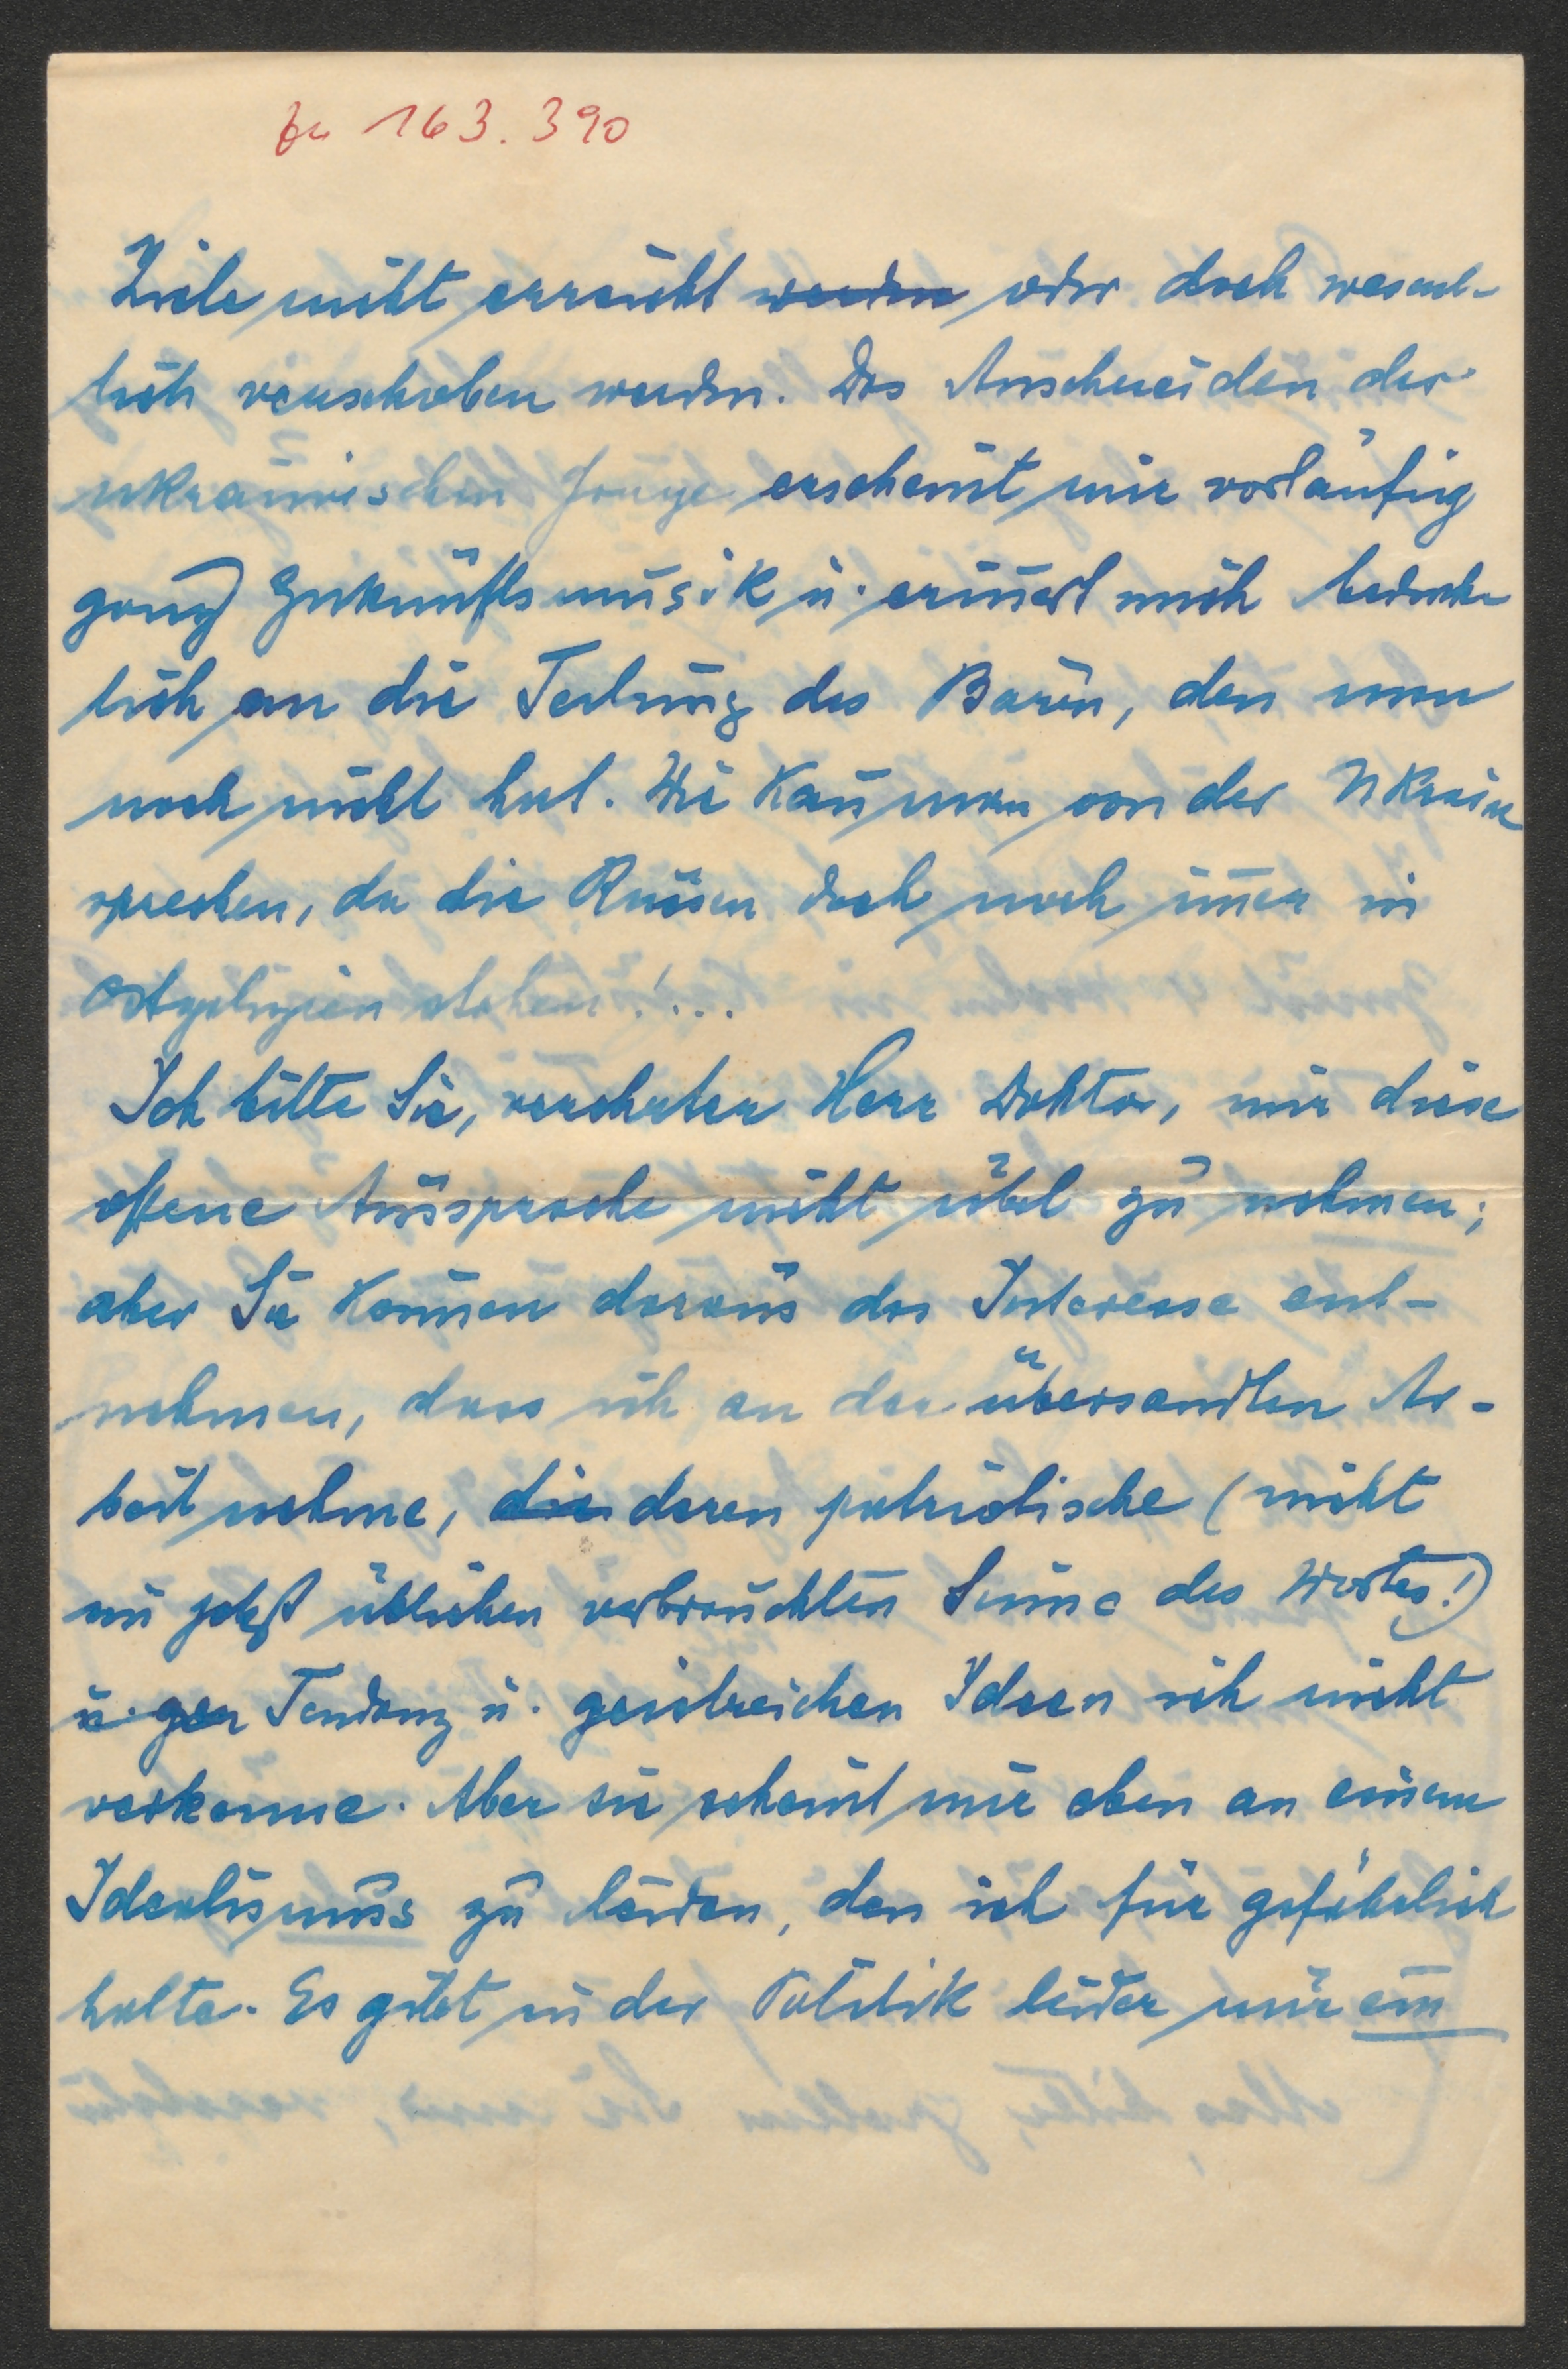 zu 163.390
Ziele nicht erreicht werden oder doch wesent-
lich verschoben werden. Das Anschneiden der
ukrainischen Frage erscheint mir vorläufig
ganz Zukunftsmusik u. erinnert mich bedenk-
lich an die Teilung des Bären, den man
noch nicht hat. Wie kann man von der Ukraine
sprechen, da die Russen doch noch immer in
Ostgalizien stehen!...
Ich bitte Sie, verehrter Herr Doktor, mir diese
offene Aussprache nicht übel zu nehmen;
aber Sie können daraus das Interesse ent-
nehmen, dass ich an der übersandten Ar-
beit nehme, die deren patriotische (nicht
im jetzt üblichen verbrauchten Sinne des Wortes!)
u. gen Tendenz u. geistreichen Ideen ich nicht
verkenne. Aber sie scheint mir eben an einem
Idealismus zu leiden, den ich für gefährlich
halte. Es gibt in der Politik leider nur ein